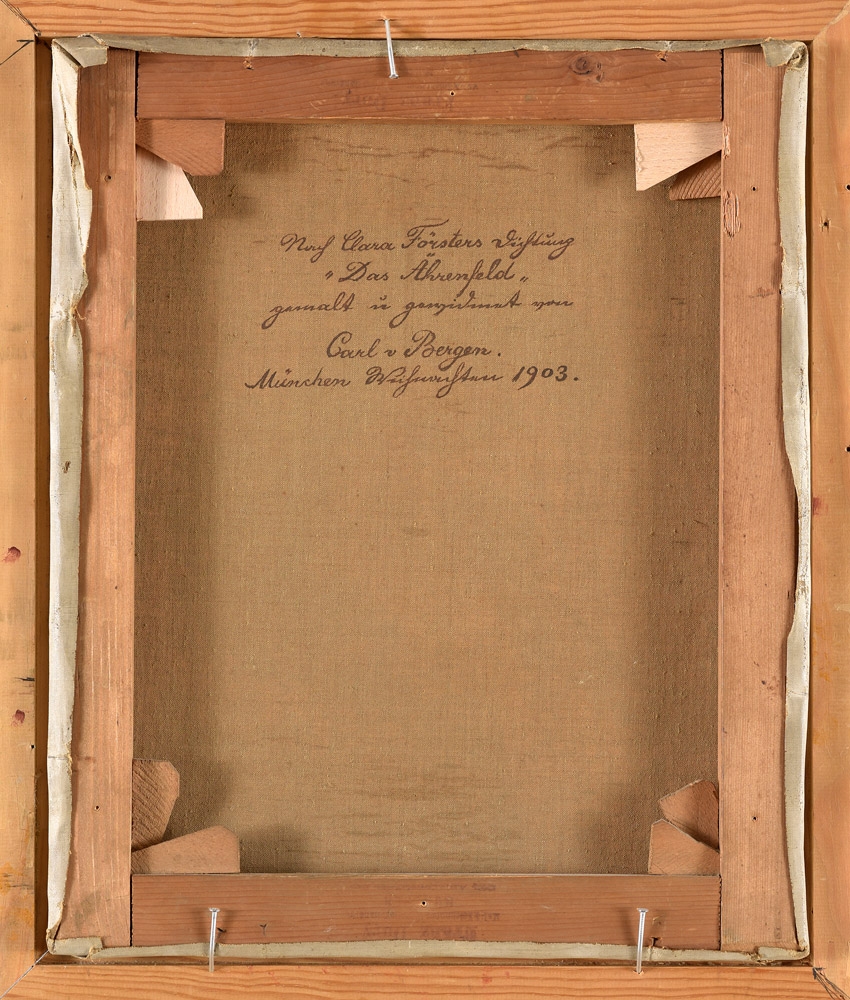 Nach Clara Försters Dichtung
„Das Ährenfeld„
gemalt u gewidmet von
Carl v Bergen.
München Weihnachten 1903.